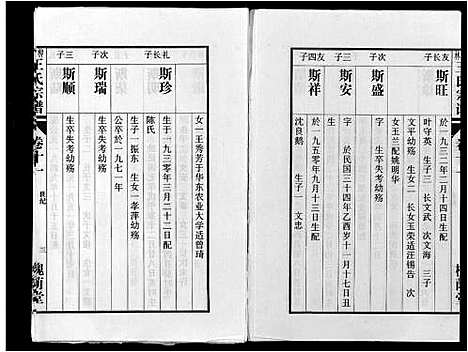 友长子
斯旺
公一九三二年二月十四日生配
叶守英 生子三 长文武 次文海 三子
文平幼殇 生女二 长女玉荣适汪锡告 次
女玉兰配姚明华
次子
斯盛
生卒失考幼殇
三子
斯安
字 于民国三十四年乙酉岁十一月十七日丑
生卒失考幼殇
友四子
斯祥
公一九五〇年九月十三日生配
沈良鹅 生子一 文忠
礼长子
斯珍
女一王秀芳于华东农业大学适曾琦
公生于一九三〇年三月二十二日生配
陈氏
生子一振东 生女一孝萍幼殇
公卒于一九七一年
次子
斯瑞
生卒失考幼殇
三子
斯顺
生卒失考幼殇
王氏宗谱
卷十一
世纪
三
槐荫堂